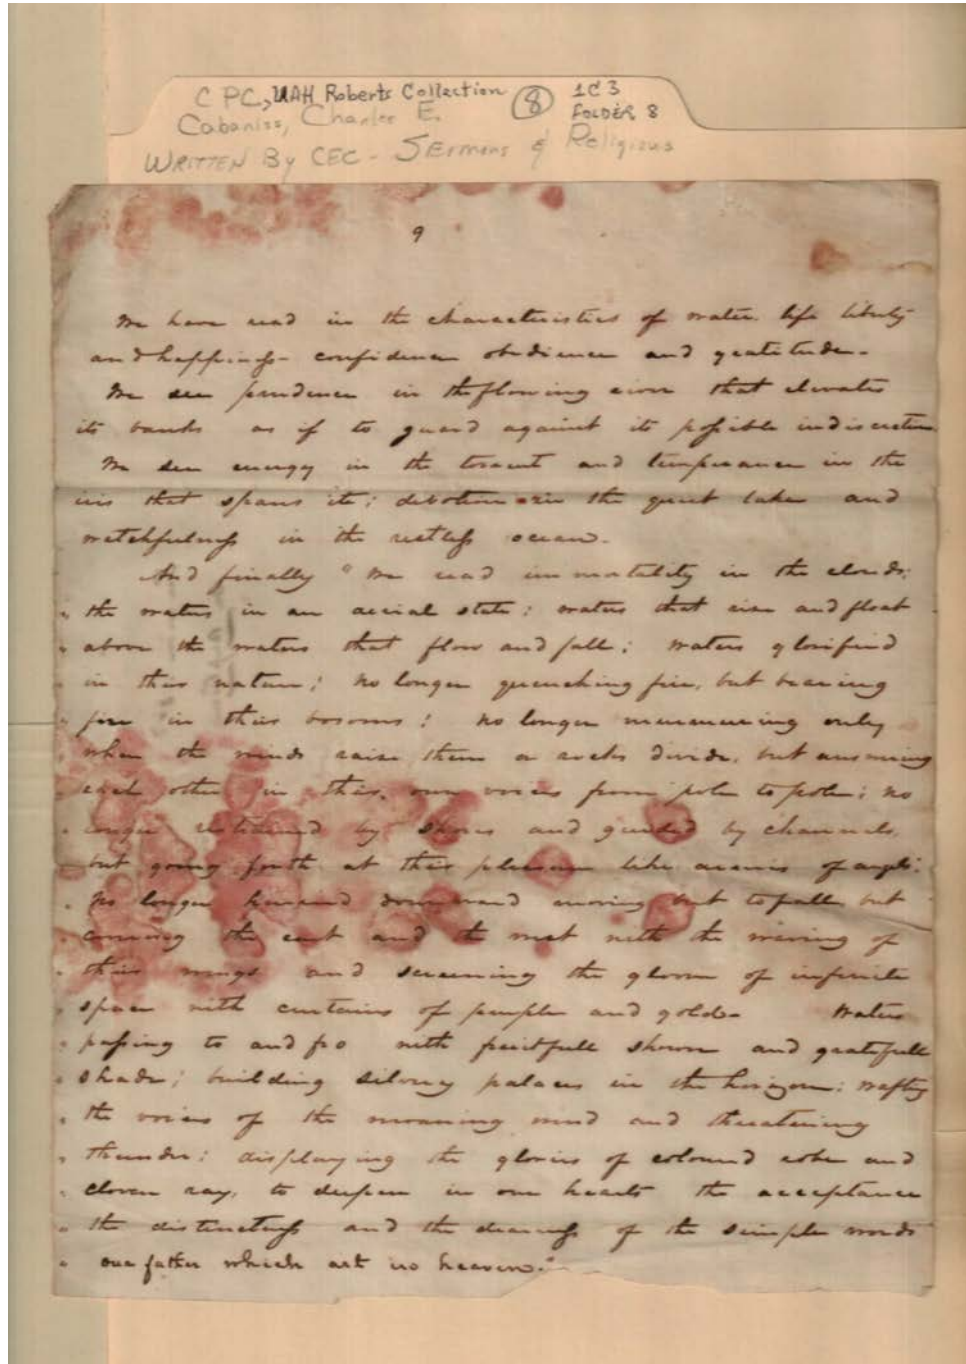 CPC, UAH Roberts Collection
8
1C3
FOLDER 8
Cabaniss, Charles E.
WRITTEN By CEC - SErmons & Religious
9
We have read in the characteristics of water life liberty
and happiness - confidence obedience and gratitude -
We see prudence in the flowing river that elevates
its banks as if to guard against its possible indiscretion
We see energy in the torrent and temperance in the
iris that spans it; devotion in the quiet lake and
watchfulness in the restless ocean.
And finally " We read immortality in the clouds:
" the waters in an aerial state; waters that rise and float
" above the waters that flow and fall; waters glorified
" in their nature; no longer quenching fire, but bearing
" fire in their bosoms; no longer murmuring only
when the winds raise them or rocks divide, but answering
each other in their own voices from pole to pole; no
" longer restrained by shores and guided by channels,
" but going forth at their pleasure like armies of angels;
" No longer hurried downward moving but to fall but
covering the east and the west with the waving of
" their wings and screening the gloom of infinite
" space with curtains of purple and gold - Waters
" passing to and fro with fruitfull shower and gratefull
" shade; building silvery palaces in the horizon; wafting
" the voices of the moaning wind and threatening
" thunder; displaying the glories of coloured robe and
" cloven ray, to deepen in our hearts the acceptance
" the distinctness and the dearness of the simple words
" our father which art in heaven."